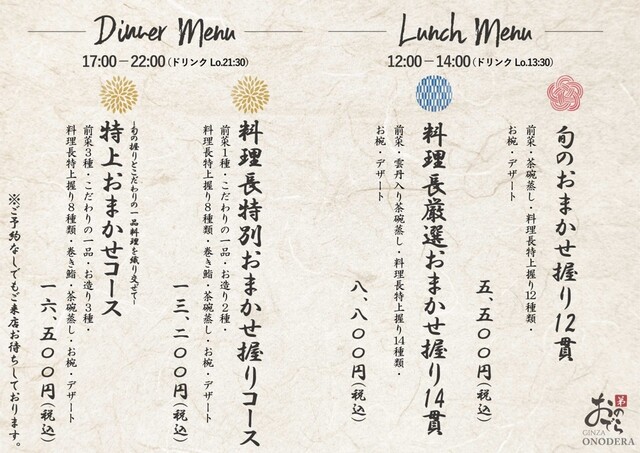 Dinner Menu
17:00－22:00(ドリンク Lo.21:30)
Lunch Menu
12:00－14:00(ドリンク Lo.13:30)
旬のおまかせ握り12貫
前菜・茶碗蒸し・料理長特上握り12種類・
お椀・デザート
五、五〇〇円(税込)
料理長厳選おまかせ握り14貫
前菜・雲丹入り茶碗蒸し・料理長特上握り14種類・
お椀・デザート
八、八〇〇円(税込)
料理長特別おまかせ握りコース
前菜1種・こだわりの一品・お造り2種・
料理長特上握り8種類・巻き鮨・茶碗蒸し・お椀・デザート
一三、二〇〇円(税込)
~旬の握りとこだわりの一品料理を織り交ぜて~
特上おまかせコース
前菜3種・こだわりの一品・お造り3種・
料理長特上握り8種類・巻き鮨・茶碗蒸し・お椀・デザート
一六、五〇〇円(税込)
※ご予約なしでもご来店お待ちしております。
弟
おのでら
GINZA
ONODERA